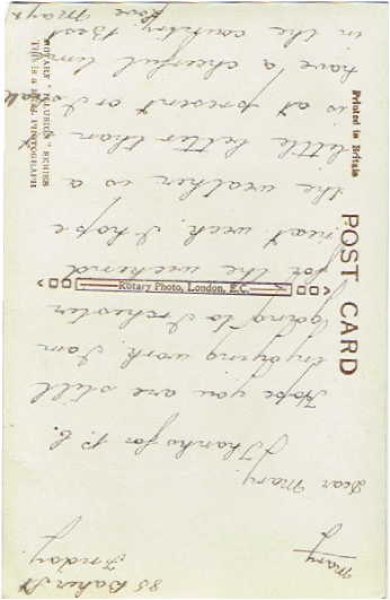 85 Baker St
Friday.
Mary
Dear Mary,
Thanks for P.C.
Hope you are still
enjoying work. I am
going to Irchester
for the weekend
next week. I hope
the weather is a
little better than
is at present or I
have a cheerful time
in the country. Best
love Mary
POST CARD
Printed in Britain
Rotary Photo, London, E.C.
ROTARY "ILLUSION" SERIES
THIS IS A REAL PHOTOGRAPH